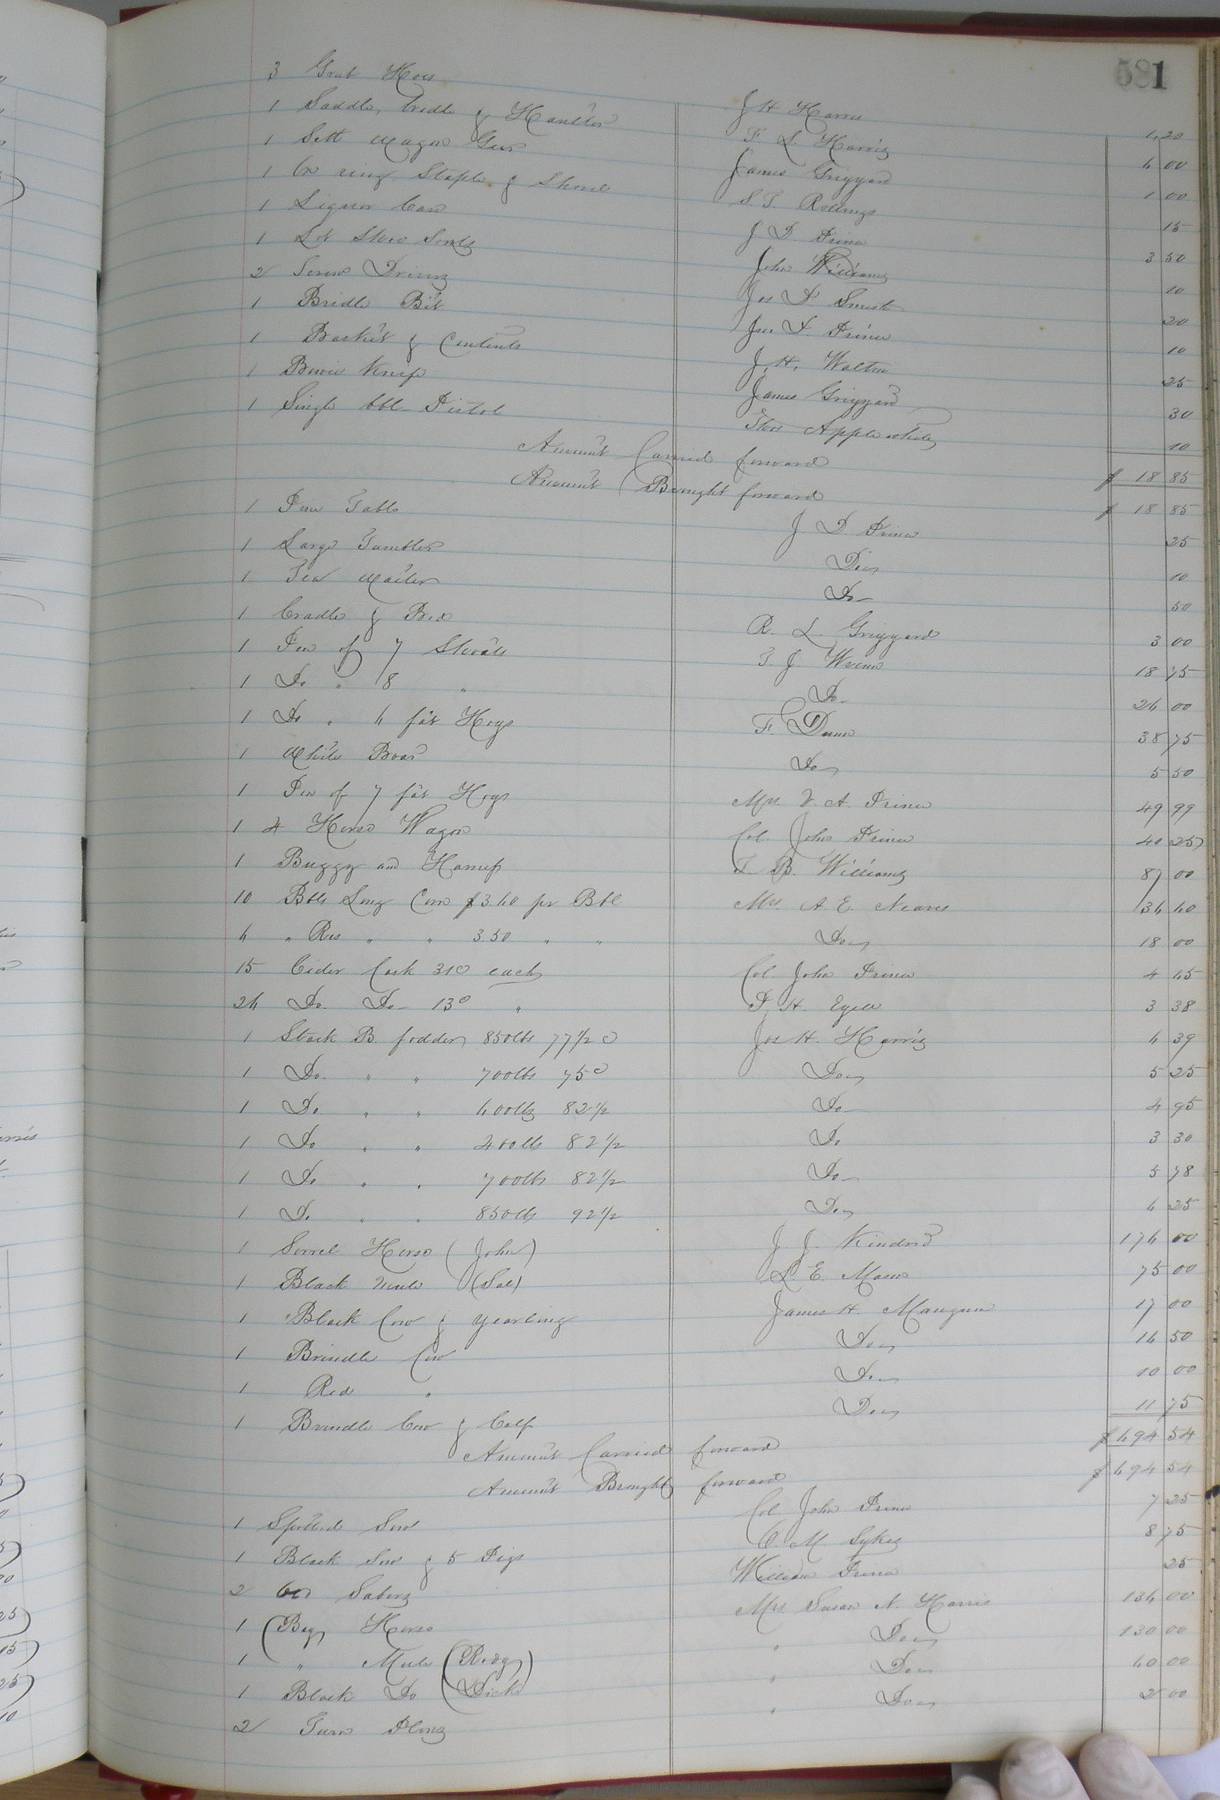 581
3 Grub Hoes J H Harris 1.20
1 Saddle, bridle & Hanlter F. L. Harris 6 00
1 Sett Wagon Gear James Grizzard 1 00
1 Ox ring Staple & Shovel S. T. Rollings 15
1 Liquor Case J D Prince 3 50
1 Lot Stew John Williams 10
2 Screw Jos P Smith 20
1 Bridle Bit Jno. D. Prince 10
1 Basket & Contents J. H. Walton 25
1 Bowie Knife James Grizzard 30
1 Single bbl Pistol Thos Applewhite 10
Amount Carried forward $ 18 85
Amount Brought forward $ 18 85
1 Pine Table J D Prince 25
1 Large Tumbler Do 10
1 Tea Waiter Do 50
1 Cradle & Bed R. L. Grizzard 3 00
1 Pen of 7 Shoats T. J. Wrenn 18 75
1 Do " 8 " Do 26 00
1 Do " 6 fat Hogs F. Dunn 38 75
1 White Boar Do 5 50
1 Pen of 7 fat Hogs Mrs V. A. Prince 49 99
1 4 Horse Wagon Col. John Prince 40 25
1 Buggy and Harness T. B. Williams 87 00
10 Bbls Long Corn $3.60 pr Bbl Mrs A. E. Neaves 36 60
6 " Res " " 3.50 " " Do 18 00
15 Cider Cask 31c each Col. John Prince 4 65
26 Do Do 13c " P. H. Ezell 3 38
1 Stack B. fodder 850lbs 77 1/2 c Jos H. Harris 6 39
1 Do " " 700lbs 75c Do 5 25
1 Do " " 600lbs 82 1/2 Do 4 95
1 Do " " 400lbs 82 1/2 Do 3 30
1 Do " " 700lbs 82 1/2 Do 5 78
1 Do " " 850lbs 92 1/2 Do 6 25
1 Sorrel Horse (John) J. J. Kindred 176 00
1 Black Mule (Sal) L. E. Mason 75 00
1 Black Cow & yearling James H. Mangum 17 00
1 Brindle Cow Do 16 50
1 Red " Do 10 00
1 Brindle Cow & Calf Do 11 75
Amount Carried forward $694 54
Amount Brought forward $694 54
1 Spotted Sow Col John Prince 7 25
1 Black Sow & 5 Pigs C M Sykes 8 75
2 William Prince 25
1 (Bay Horse Mrs Susan N. Harris 136 00
1 " Mule (Rody) " Do 130 00
1 Black Do (Dick) " Do 60 00
2 Turn Plows " Do 2 00